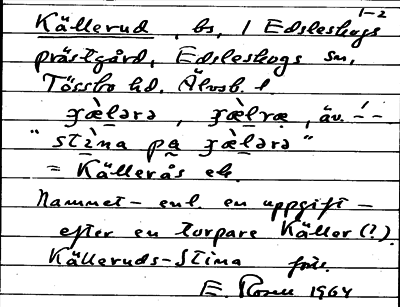 1-2
Källerud, bs, i Edsleskogs
prästgård, Edsleskogs sn,
Tössbo hd. Älvsb. l.
ʒæ̀lərə, ʒæ̀lræ, äv. ´ - -
"stìna pa ʒæ̀lərə"
= Källerås ek.
Namnet – enl. en uppgift –
efter en torpare Käller (?).
Källeruds-Stina förr.
E. 1964